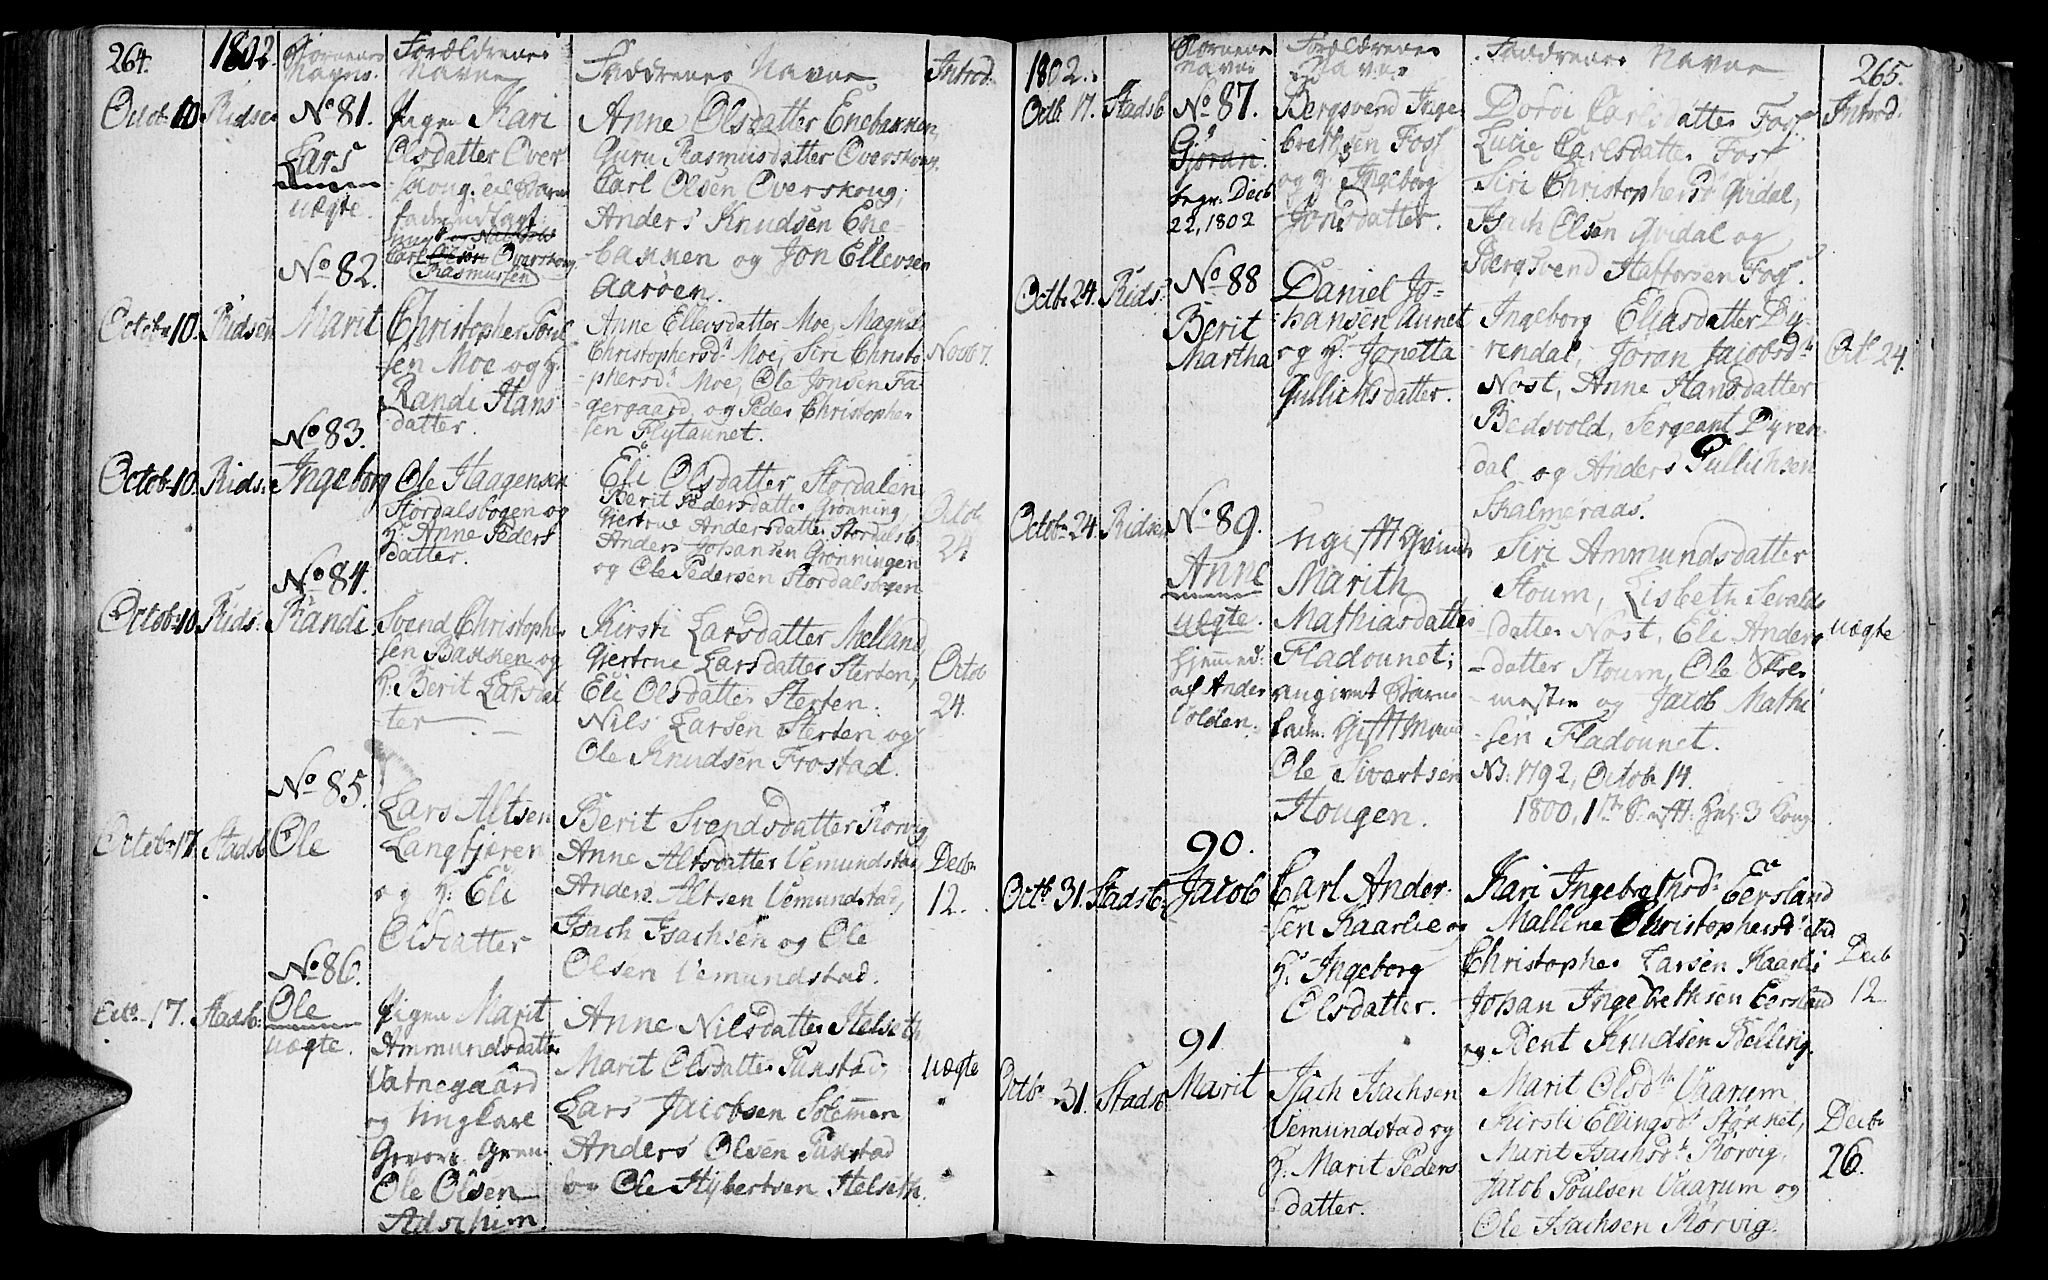 264. 1802. Børnenes Navne. Forældrenes Navne Faddrenes Navne Introd.
Octob: 10 Ridsen No 81. Lars uægte.
Pigen Kari
Olsdatter Over
skoug.
Carl Olsen Overskoug
Rasmussen
Anne Olsdatter Enebakken,
Guru Rasmusdatter Overskoug,
Carl Olsen Overskoug,
Anders Knudsen Ene-
bakken og Jon Ellevsen
Aarøen.
No 82.
Octob: 10. Ridsen Marit
Christopher Poul
sen Moe og H:
Randi Hans
datter.
Anne Ellevsdatter Moe, Magnil
Christophersd: Moe, Siri Christo
phersd: Moe, Ole Jonsen Fa
gergaard og Peder Christopher
sen Flytaunet.
Novb 7.
No 83.
Octob: 10. Rids: Ingeborg
Ole Haagensen
Stordalsbogen og
H: Anne Peders
datter.
Eli Olsdatter Stordalen
Berit Pedersdatter Grønning
Gjertrue Andersdatter Stordalsb.
Anders Johansen Grønningen
og Ole Pedersen Stordalsbogen
Octob
24
No 84.
Octob: 10 Rids: Randi
Svend Christopher
sen Bakken og
H: Berit Larsdat
ter
Kirsti Larsdatter Mælland,
Gjertrue Larsdatter Sterten,
Eli Olsdatter Sterten.
Nils Larsen Sterten og
Ole Knudsen Frostad.
Octob
24.
No 85.
Octob: 17. Stadsb Ole
Lars Altsen
Langfjøren
og H: Eli
Olsdatter
Berit Svendsdatter Rørvig
Anne Altsdatter Uemundstad
Anders Altsen Uemundstad,
Isach Isachsen og Ole
Olsen Uemundstad.
Decb:
12.
No 86.
17. Stadsb: Ole uægte.
Pigen Marit
Ammundsdatter
Vatnegaard
og Ungkarl
Ole Olsen
Anne Nilsdatter Helseth
Marit Olsdatter Pukstad
Lars Jacobsen Solemsen
Anders Olsen Pukstad
og Ole Hybertsen Helseth.
uægte
1802. Børnenes Navne Forældrenes Navne Faddrenes Navne 265.
Octb: 17. Stadsb No 87. Gjøran
begr. Decb
22, 1802
Bergsvend Inge
brethsen Foss
og H: Ingeborg
Jonsdatter.
Dordi Carlsdatter Foss
Lucie Carlsdatter Foss
Siri Christophersd: Qvidal,
Isach Olsen Qvidal og
Bergsvend Haftorsen Foss.
Introd.
Octb: 24. Rids: No 88
Berit
Martha
Daniel Jo-
hansen Aunet
og H: Jonetta
Gullichsdatter.
Ingeborg Eliasdatter Dy-
rendal, Jøran Jacobsd:
Nøst, Anne Hansdatter
Bedsvold, Sergeant Dyren
dal og Anders Gullichsen
Skalmeraas.
Octb 24.
Octob: 24. Ridsen No 89.
Anne
uægte.
af Anders
Volden.
Ugift
Marith
Mathiasdatter
Fladounet;
angivet Barne
Ole Sivertsen
Hougen.
Siri Ammundsdatter
Stoum, Lisbeth Sevalds
datter Nøst, Eli Anders
datter Stoum, Ole Skoe
mester og Jacob Mathi
sen Fladounet.
NB: 1792, Octob 14.
uægte
90.
Octb: 31. Stadsb. Jacob
Carl Ander
sen Kaarlie og
H: Ingeborg
Olsdatter.
Kari Ingebrethsd: Eersland
Mallene Christophersd: ibid
Christopher Larsen Kaarli
Johan Ingebrethsen Eersland
og Bent Knudsen Belling.
Decb
12
91
Octb: 31. Stadsb Marit
Isach Isachsen
Uemundstad og
H: Marit Peders
datter.
Marit Olsd: Vaarum
Kirsti Ellingsd: Stønnet,
Marit Isachsd: Rørvig,
Jacob Poulsen Vaarum og
Ole Isachsen Rørvig.
Decb:
26.